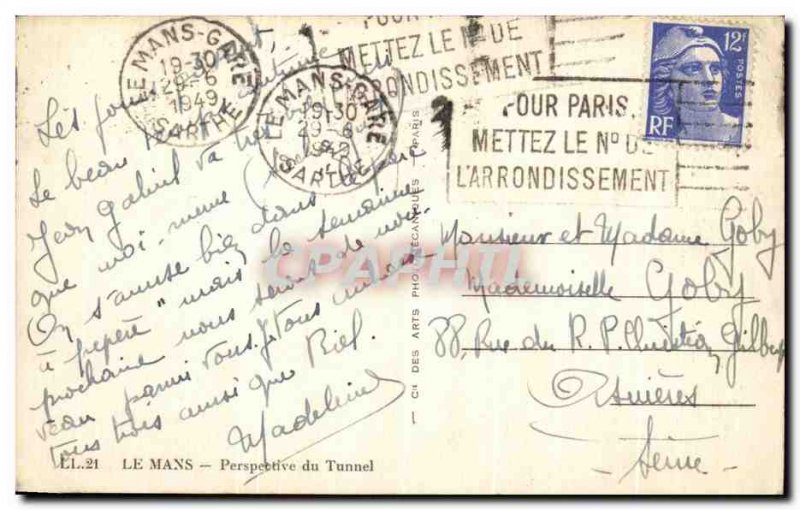 LE MANS-GARE
19-30
29-6
1949
SARTHE
LE MANS-GARE
19-30
29-6
SARTHE
METTEZ LE No DE
ARRONDISSEMENT
POUR PARIS,
METTEZ LE No DE
L'ARRONDISSEMENT
12F
POSTES
RF
Le beau
Jean Gabriel va
que moi-même
On s'amuse bien dans
à pépère" mais la semaine
prochaine nous serons de nou-
veau parmi vous. Je vous
tous trois ainsi que Riel.
Madeleine
Monsieur et Madame Goby
Mademoiselle Goby
88, Rue du R. P. Christian Gilbert
Asnières
- Seine -
CPAPHIL
Cie DES ARTS PHOTOMÉCANIQUES, PARIS
LL.21 LE MANS — Perspective du Tunnel